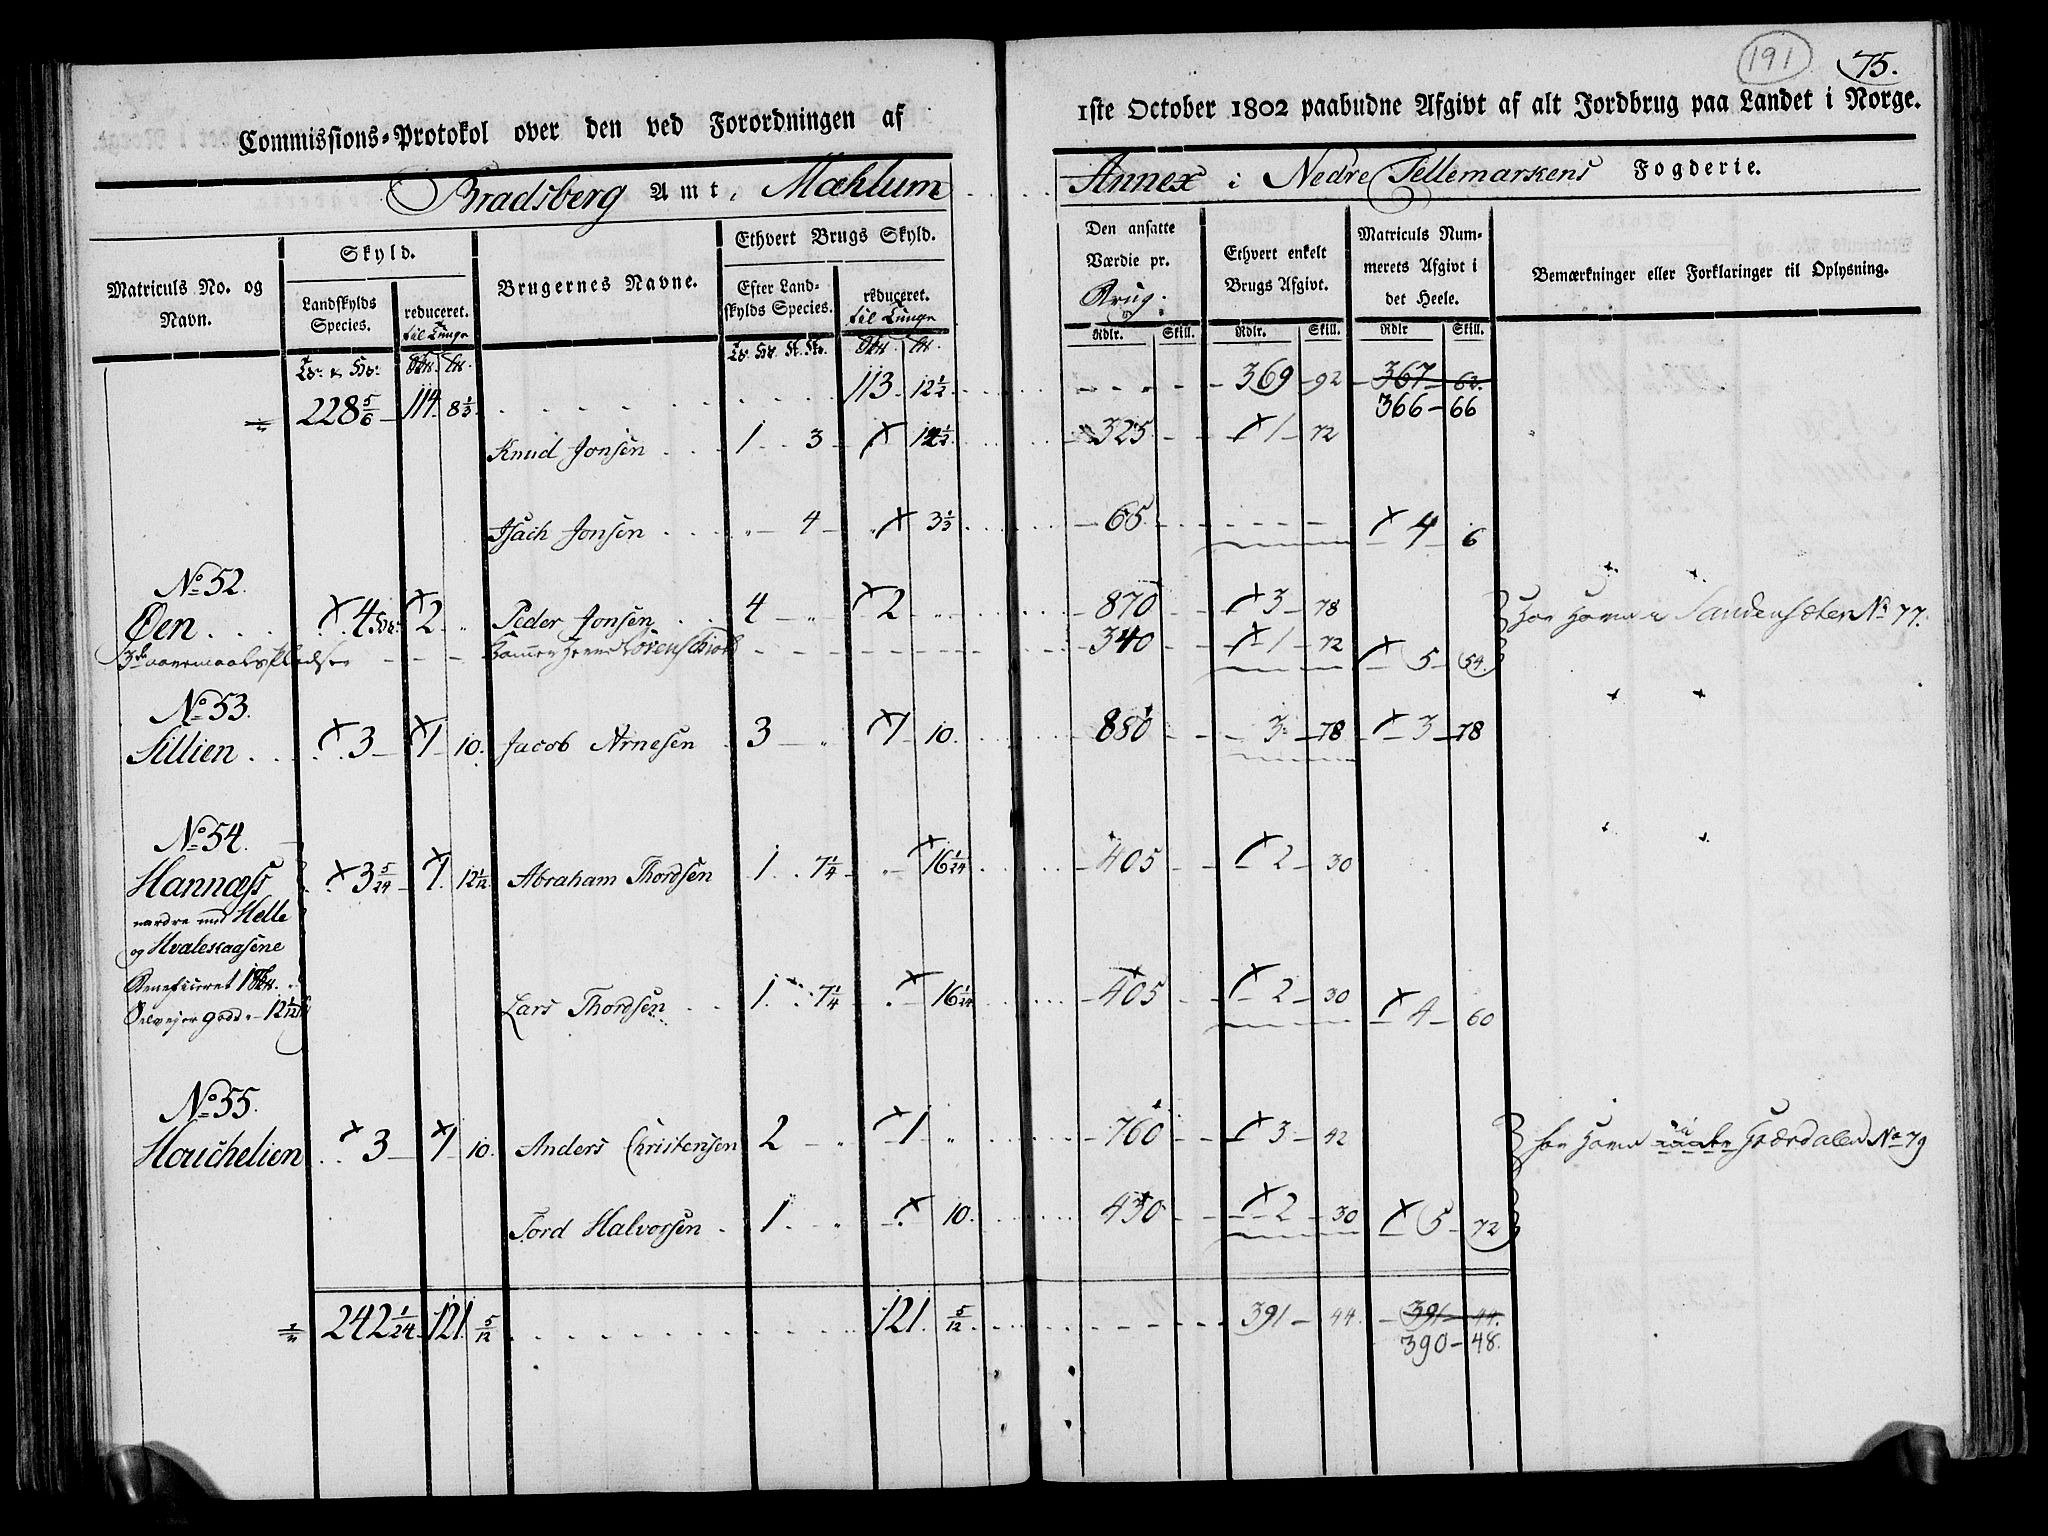 191 75.
Commissions-Protokol over den ved Forordningen af 1ste October 1802 paabudne Afgivt af alt Jordbrug paa Landet i Norge.
Bradsberg Amt, Mæhlum Annex i Nedre Tellemarkens Fogderie.
Matriculs No. og Navn. Skyld. Landskylds Species. reduceret. til Tunge Brugernes Navne. Ethvert Brugs Skyld. Efter Landskylds Species. reduceret. til Tunge Den ansatte Værdie pr. Brug. Ethvert enkelt Brugs Afgivt. Matriculs Nummerets Afgivt i det Heele. Bemærkninger eller Forklaringer til Oplysning.
Rdlr. Skill. Rdlr. Skill. Rdlr Skill.
228 5/6 114. 8 1/3. 113. 12 1/2 369 92 367 62.
366 66
Knud Jonsen 1 3 12 1/2 325 1 72
Isach Jonsen 4 3 1/3 65 4 6
No 52.
Øen 4 2 Peder Jonsen 4 2 870 3 78 Sandensæter No 77.
340 1 72 5 54.
No 53.
Lillien 3 1 10. Jacob Arnesen 3 1 10. 880 3 78 3 78
No 54.
Hannæss 3 5/24 1 12 1/12 Abraham Thordsen 1 7 1/4 16 1/24 405 2 30
nordre med Helle
og Hvaleskaasene
Beneficeret 1
Selvejer gods 12 1/12
Lars Thordsen 1 7 1/4 16 1/24 405 2 30 4 60
No 55.
Houchelien 3 1 10. Anders Christensen 2 1 760 3 42 No 79
Tord Halvorsen 1 10. 430 2 30 5 72
242 1/24 121. 5/12 121. 5/12 391 44. 391 44.
390 48.